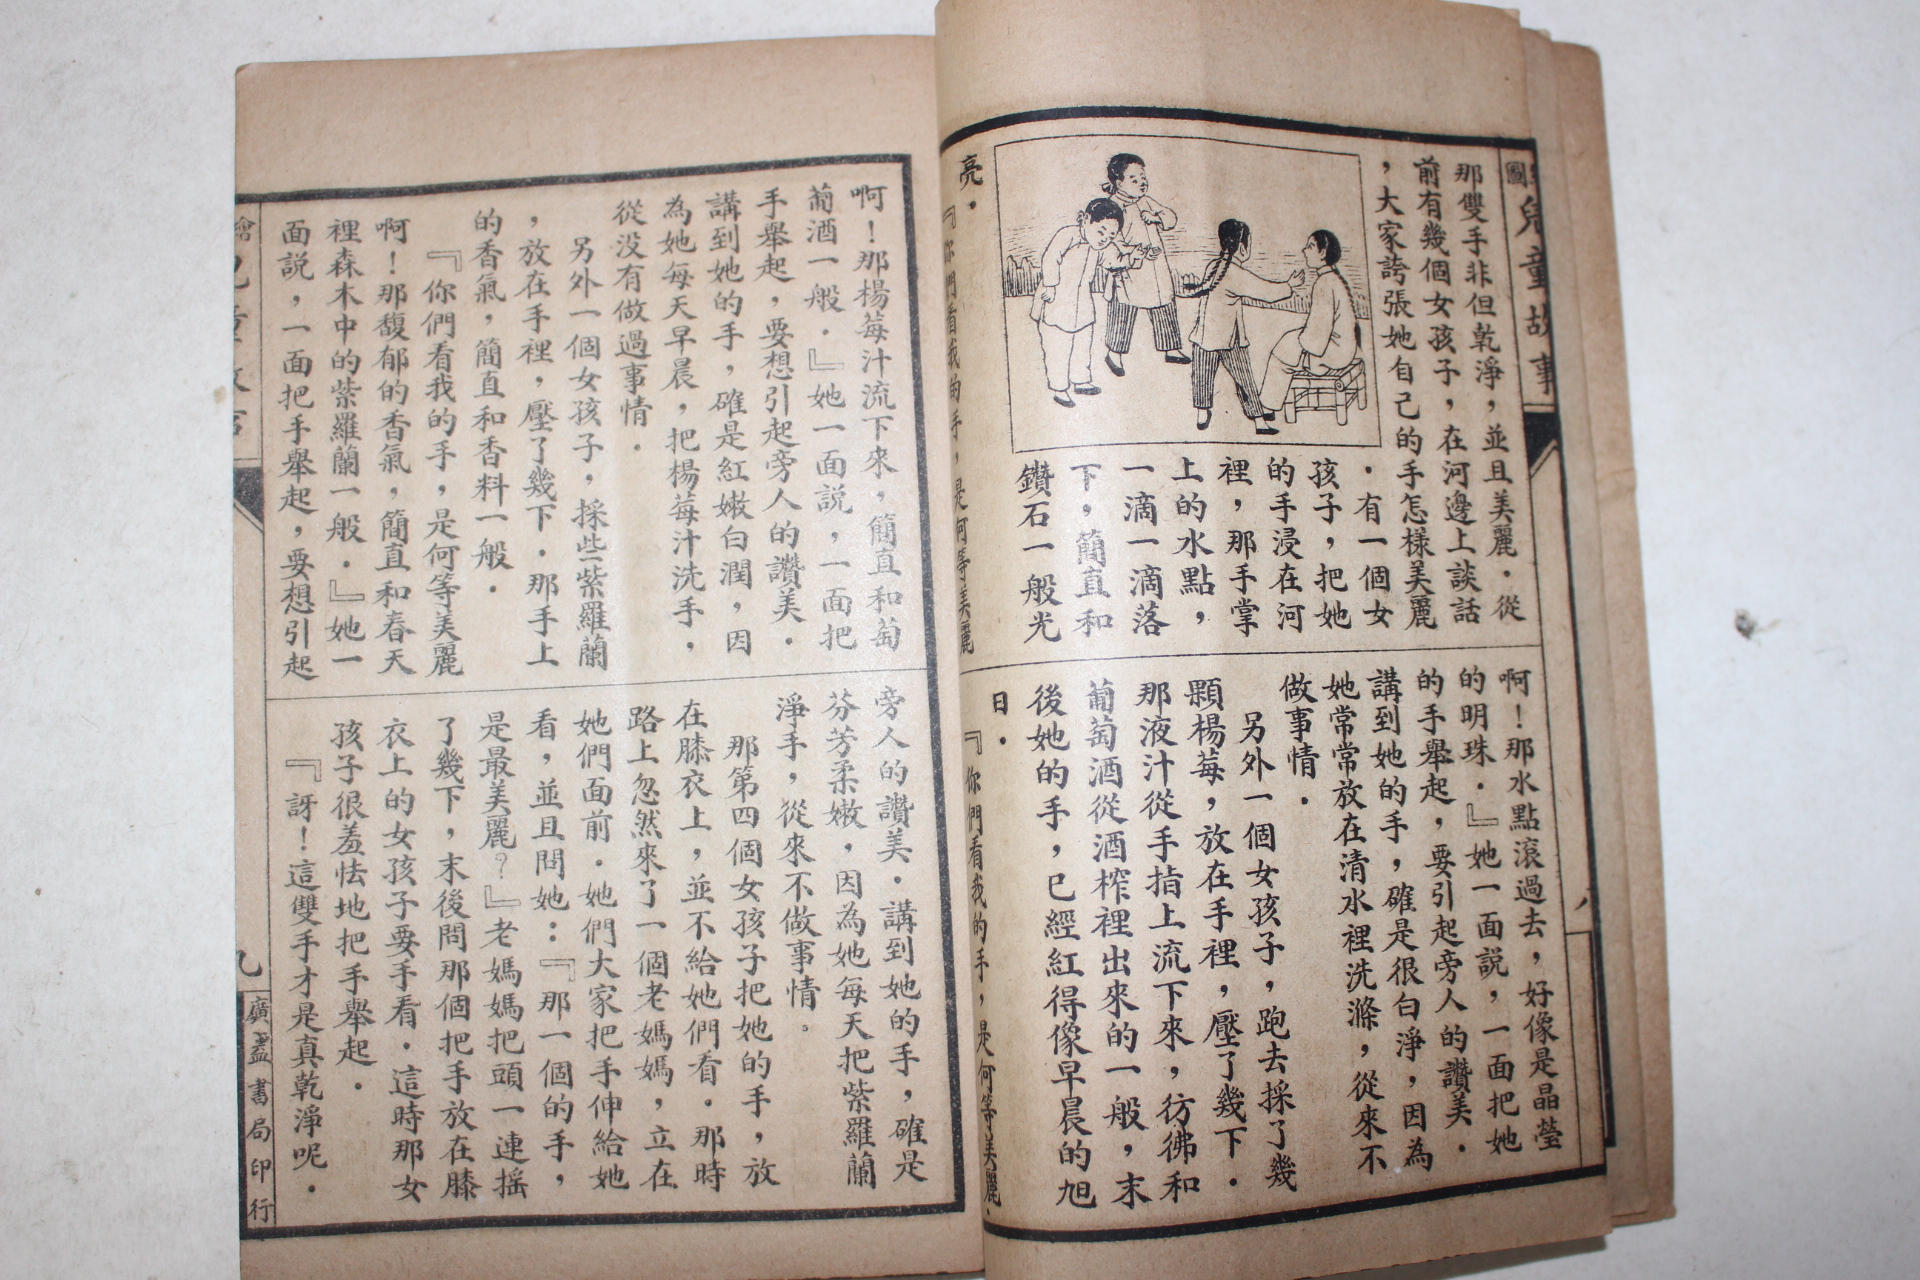 圖兒童故事
八
那雙手非但乾淨，並且美麗．從
前有幾個女孩子，在河邊上談話
，大家誇張她自己的手怎樣美麗
．有一個女
孩子，把她
的手浸在河
裡，那手掌
上的水點，
一滴一滴落
下，簡直和
鑽石一般光
亮．
『你們看我的手，是何等美麗
啊！那水點滾過去，好像是晶瑩
的明珠．』她一面説，一面把她
的手舉起，要引起旁人的讚美．
講到她的手，確是很白淨，因為
她常常放在清水裡洗滌，從來不
做事情．
另外一個女孩子，跑去採了幾
顆楊莓，放在手裡，壓了幾下．
那液汁從手指上流下來，彷彿和
葡萄酒從酒榨裡出來的一般，末
後她的手，已經紅得像早晨的旭
日．
『你們看我的手，是何等美麗．
啊！那楊莓汁流下來，簡直和萄
葡酒一般．』她一面説，一面把
手舉起，要想引起旁人的讚美．
講到她的手，確是紅嫩白潤，因
為她每天早晨，把楊莓汁洗手，
從没有做過事情．
另外一個女孩子，採些紫羅蘭
，放在手裡，壓了幾下．那手上
的香氣，簡直和香料一般．
『你們看我的手，是何等美麗
啊！那馥郁的香氣，簡直和春天
裡森木中的紫羅蘭一般．』她一
面説，一面把手舉起，要想引起
旁人的讚美．講到她的手，確是
芬芳柔嫩，因為她每天把紫羅蘭
淨手，從來不做事情。
那第四個女孩子把她的手，放
在膝衣上，並不給她們看．那時
路上忽然來了一個老媽媽，立在
她們面前．她們大家把手伸給她
看，並且問她：『那一個的手，
是最美麗？』老媽媽把頭一連摇
了幾下，末後問那個把手放在膝
衣上的女孩子要手看．這時那女
孩子很羞怯地把手舉起．
『訝！這雙手才是真乾淨呢．
九
廣益書局印行